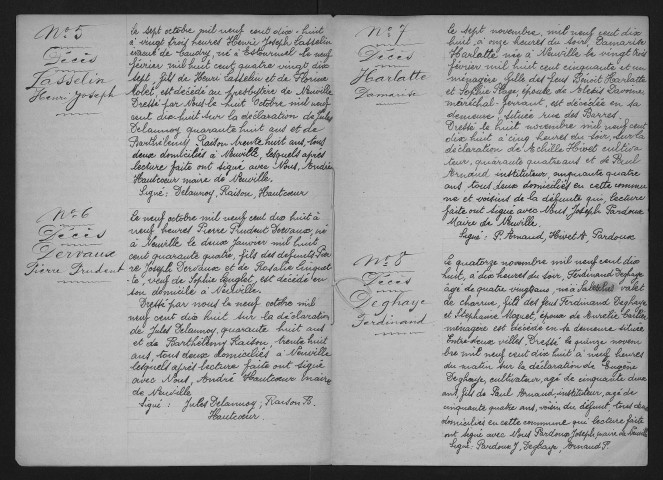 N° 5
Décès
Tasselin
Henri Joseph
le sept octobre mil neuf cent dix-huit
à vingt trois heures Henri Joseph Tasselin
de Caudry, né à Estourmel le
février mil huit cent quatre vingt dix
sept, fils de Henri Tasselin et de Florine
est décédé au presbytère de Neuville
Dressé par Nous le huit Octobre mil neuf
cent dix huit sur la déclaration de Jules
Delaunoy quarante huit ans et de
Barthélemy Raison trente huit ans, tous
deux domiciliés à Neuville, lesquels après
lecture faite ont signé avec Nous, André
Hautcœur maire de Neuville.
Signé: Delaunoy, Raison, Hautcœur
N° 6
Décès
Dervaux
Pierre Prudent
le neuf octobre mil neuf cent dix huit à
neuf heures Pierre Prudent Dervaux, né
à Neuville le deux Janvier mil huit
cent quarante quatre, fils des défunts Pier
re Joseph Dervaux et de Rosalie
veuf de Sophie est décédé en
son domicile à Neuville.
Dressé par nous le neuf octobre mil
neuf cent dix huit sur la déclaration
de Jules Delaunoy, quarante huit ans
et de Barthélemy Raison, trente huit
ans, tous deux domiciliés à Neuville
lesquels après lecture faite ont signé
avec Nous, André Hautcœur maire
de Neuville
Signé: Jules Delaunoy, Raison B.
Hautcœur.
N° 7
Décès
Harlatte
Damarise
le sept novembre, mil neuf cent dix
huit, à onze heures du soir, Damarise
Harlatte née à Neuville le vingt trois
février mil huit cent cinquante et un
ménagère, fille des feus Benoit Harlatte
et Sophie Plage, épouse de Alexis
maréchal-ferrant, est décédée en sa
demeure située rue des Barres.
Dressé le huit novembre mil neuf cent
dix huit à cinq heures du soir, sur la
déclaration de Achille Hivet cultiva
teur, quarante quatre ans et de Paul
Arnaud instituteur, cinquante quatre
ans tous deux domiciliés en cette commu
ne et voisins de la défunte qui, lecture
faite ont signé avec Nous Joseph Pardoux
Maire de Neuville.
Signé: P. Arnaud, Hivet A, Pardoux
N° 8
Décès
Deghaye
Ferdinand
Le quatorze novembre mil neuf cent dix
huit, à dix heures du soir, Ferdinand Deghaye
âgé de quatre vingt ans, né à valet
de charrue, fils des feus Ferdinand Deghaye
et Stéphanie époux de Aurélie
ménagère est décédé en sa demeure située
Entre deux villes. Dressé le quinze novem
bre mil neuf cent dix huit à neuf heures
du matin sur la déclaration de Eugène
Deghaye, cultivateur, âgé de cinquante deux
ans, fils de Paul Arnaud, instituteur, âgé de
cinquante quatre ans, voisin du défunt tous deux
domiciliés en cette commune qui lecture faite
ont signé avec Nous Pardoux Joseph maire de Neuville
Signé: Pardoux J, Deghaye, Arnaud P.